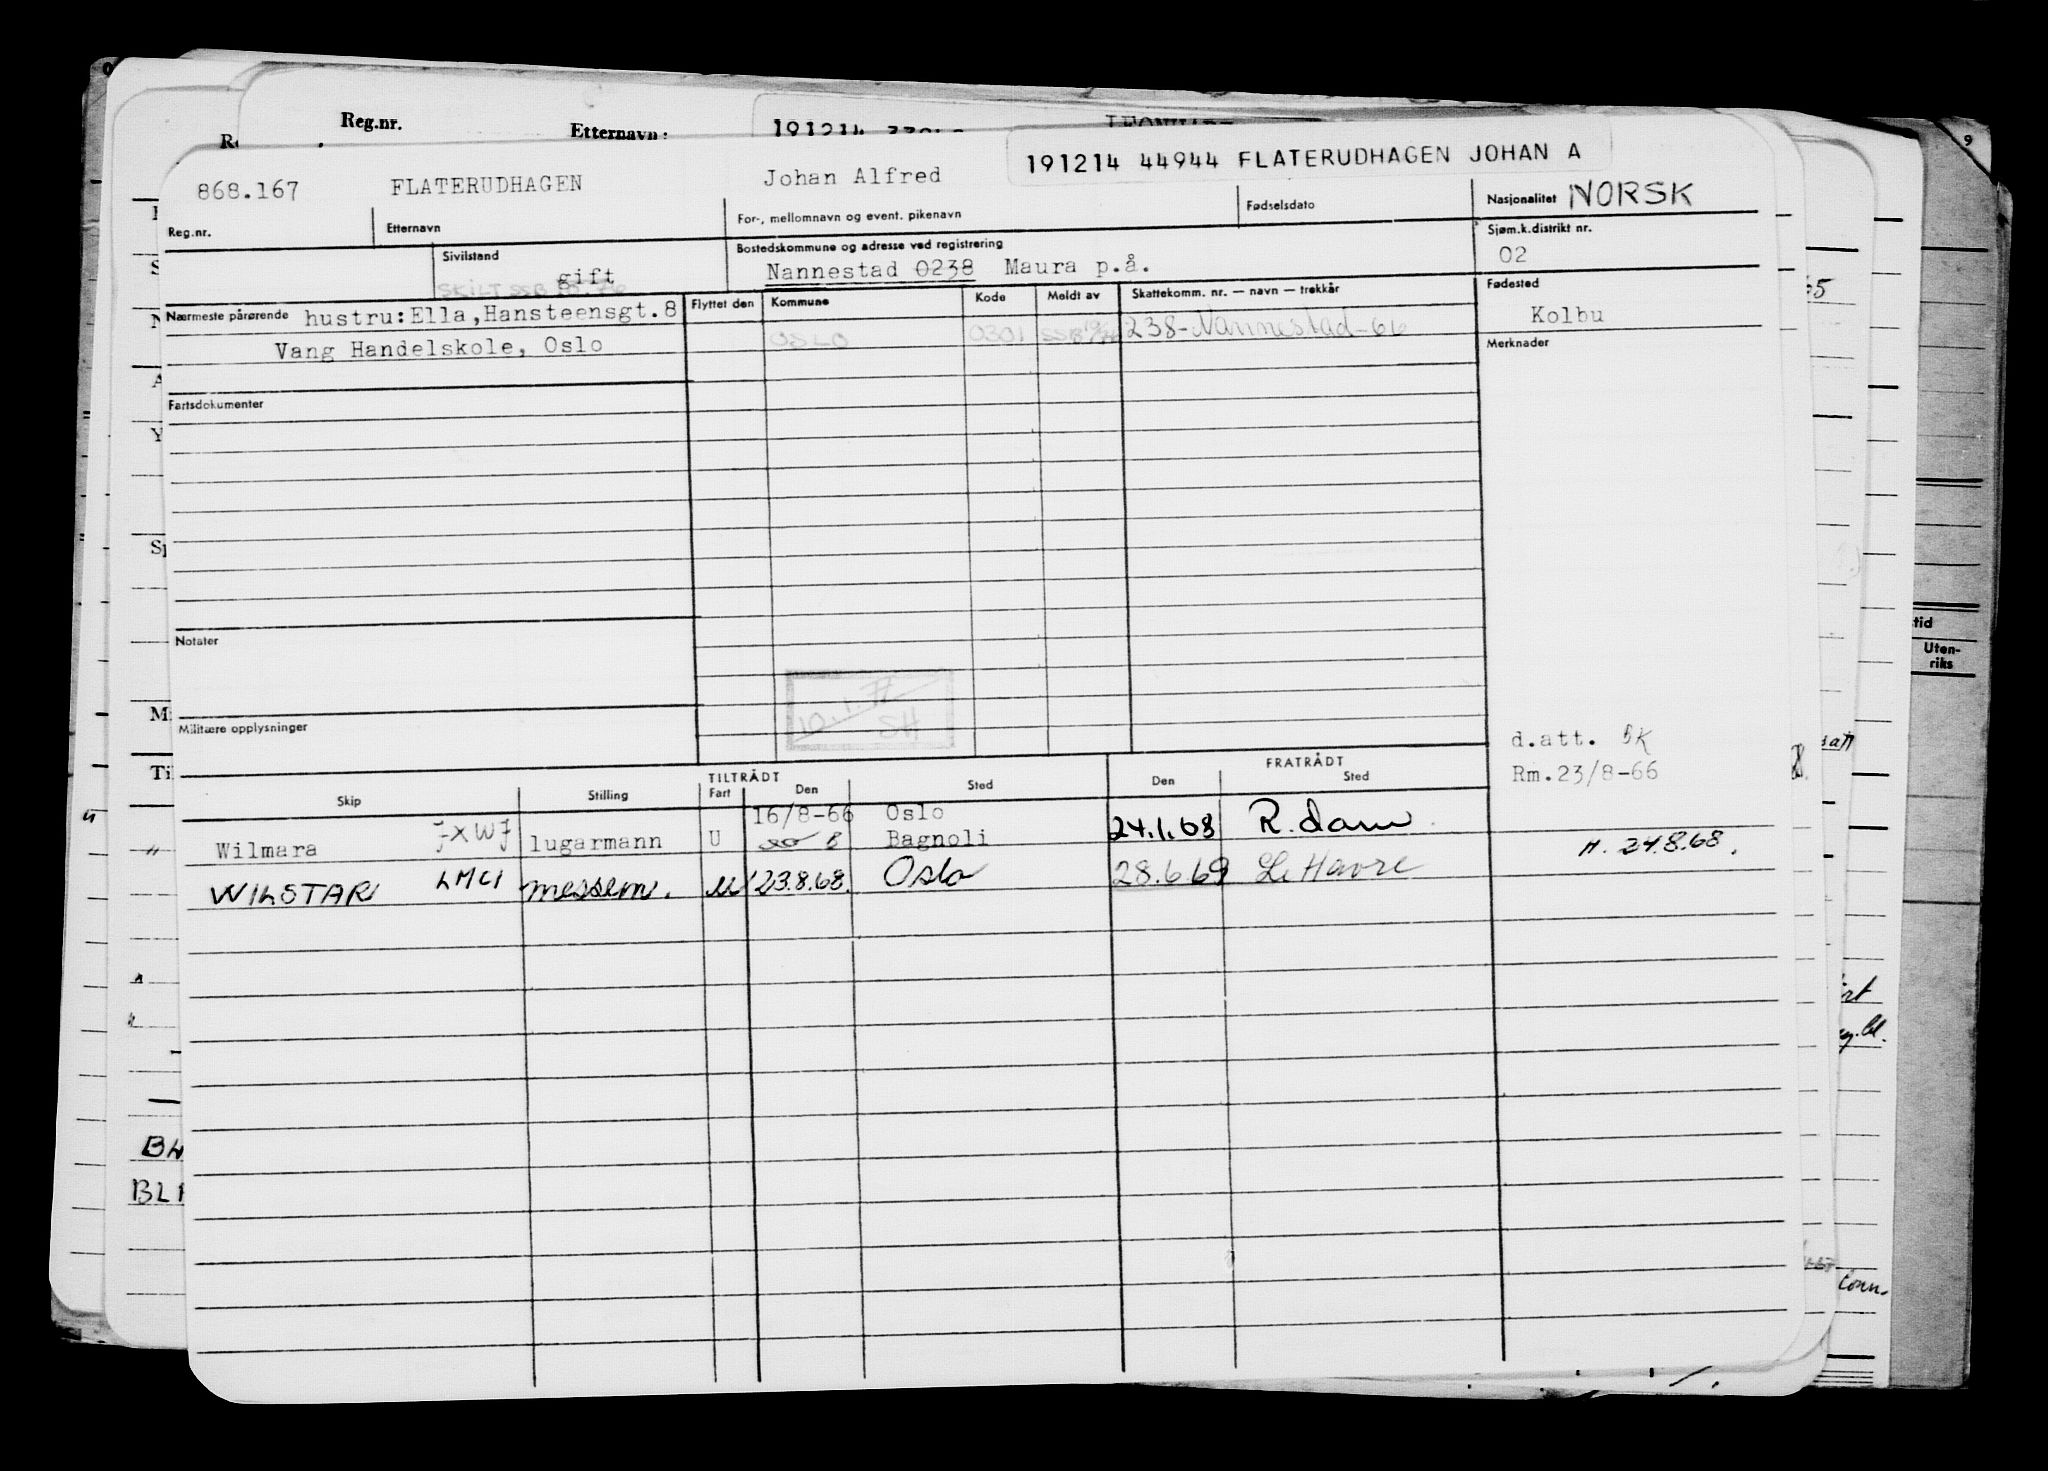 Reg.nr. Etternavn: 191214
191214 44944 FLATERUDHAGEN JOHAN A
868.167 FLATERUDHAGEN Johan Alfred
Reg.nr. Etternavn For-, mellomnavn og event. pikenavn Fødselsdato Nasjonalitet NORSK
Sivilstand gift Bostedskommune og adresse ved registrering Sjøm.k.distrikt nr.
SKILT SSB Nannestad 0238 Maura p.å. 02
Nærmeste pårørende hustru: Ella, Hansteensgt. 8 Flyttet den Kommune Kode Meldt av Skattekomm. nr. — navn — trekkår Fødested
Vang Handelskole, Oslo OSLO 0301 SSB 238-Nannestad-66 Kolbu
Merknader
Fartsdokumenter
Notater
10.1.77
SH
Militære opplysninger
d.att. BK
Rm.23/8-66
TILTRÅDT FRATRÅDT
Skip Stilling Fart Den Sted Den Sted
16/8-66 Oslo
Wilmara JXWJ lugarmann U 8 Bagnoli 24.1.68 R.dam.
WILSTAR LMCI messem. U 23.8.68. Oslo 28.6.69 Le Havre M. 24.8.68.
tid
Uten-
riks
9